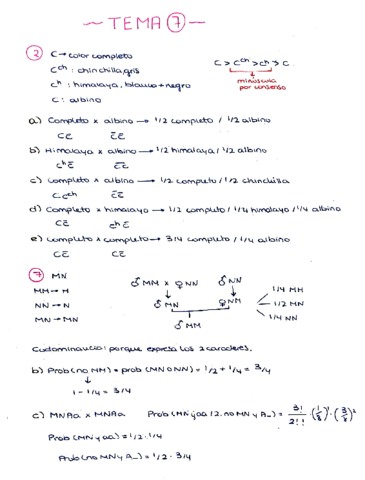 ~ TEMA 7 ~
2 C → color completo
C > cᶜʰ > cʰ > c
cᶜʰ : chinchilla, gris
minúscula
cʰ : himalaya, blanco + negro
por consenso
C : albino
a) Completo x albino → 1/2 completo / 1/2 albino
Cc̄ c̄c̄
b) Himalaya x albino → 1/2 himalaya / 1/2 albino
cʰc̄ c̄c̄
c) Completo x albino → 1/2 completo / 1/2 chinchilla
C cᶜʰ c̄c̄
d) Completo x himalaya → 1/2 completo / 1/4 himalaya / 1/4 albino
Cc̄ cʰc̄
e) completo x completo → 3/4 completo / 1/4 albino
Cc̄ Cc̄
7 MN
MM → M
NN → N
MN → MN
♂ MM x ♀ NN ♂ NN
♂ MN ♀ NM
1/4 MM
1/2 MN
1/4 NN
♂ MM
Codominancia: porque expresa los 2 caracteres.
b) Prob (no MM) = prob (MN o NN) = 1/2 + 1/4 = 3/4
↓
1 - 1/4 = 3/4
c) MNAa x MNAa Prob (MN y aa / 2. no MN y A_) = 3!/2!1! · (1/8)¹ · (3/8)²
Prob (MN y aa) = 1/2 · 1/4
Prob (no MN y A_) = 1/2 · 3/4